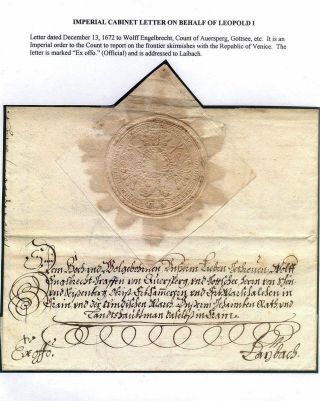 IMPERIAL CABINET LETTER ON BEHALF OF LEOPOLD I
Letter dated December 13, 1672 to Wolff Engelbrecht, Count of Auersperg, Gottsee, etc. It is an
Imperial order to the Count to report on the frontier skirmishes with the Republic of Venice. The
letter is marked "Ex offo." (Official) and is addressed to Laibach.
Dem Hoch und Wolgebohrnen Unserm Lieben Getreuen, Wolff
Engelbrecht Graffen von Auersperg, und Gottschee Herrn von Schön
und Seisenberg Obrist Erbkammerern und Erbmarschalchen in
Crain und der Windischen March Unserm Geheimben Rath, und
Landtshaubtman daselbst in Crain
Ex offo.
Laybach.